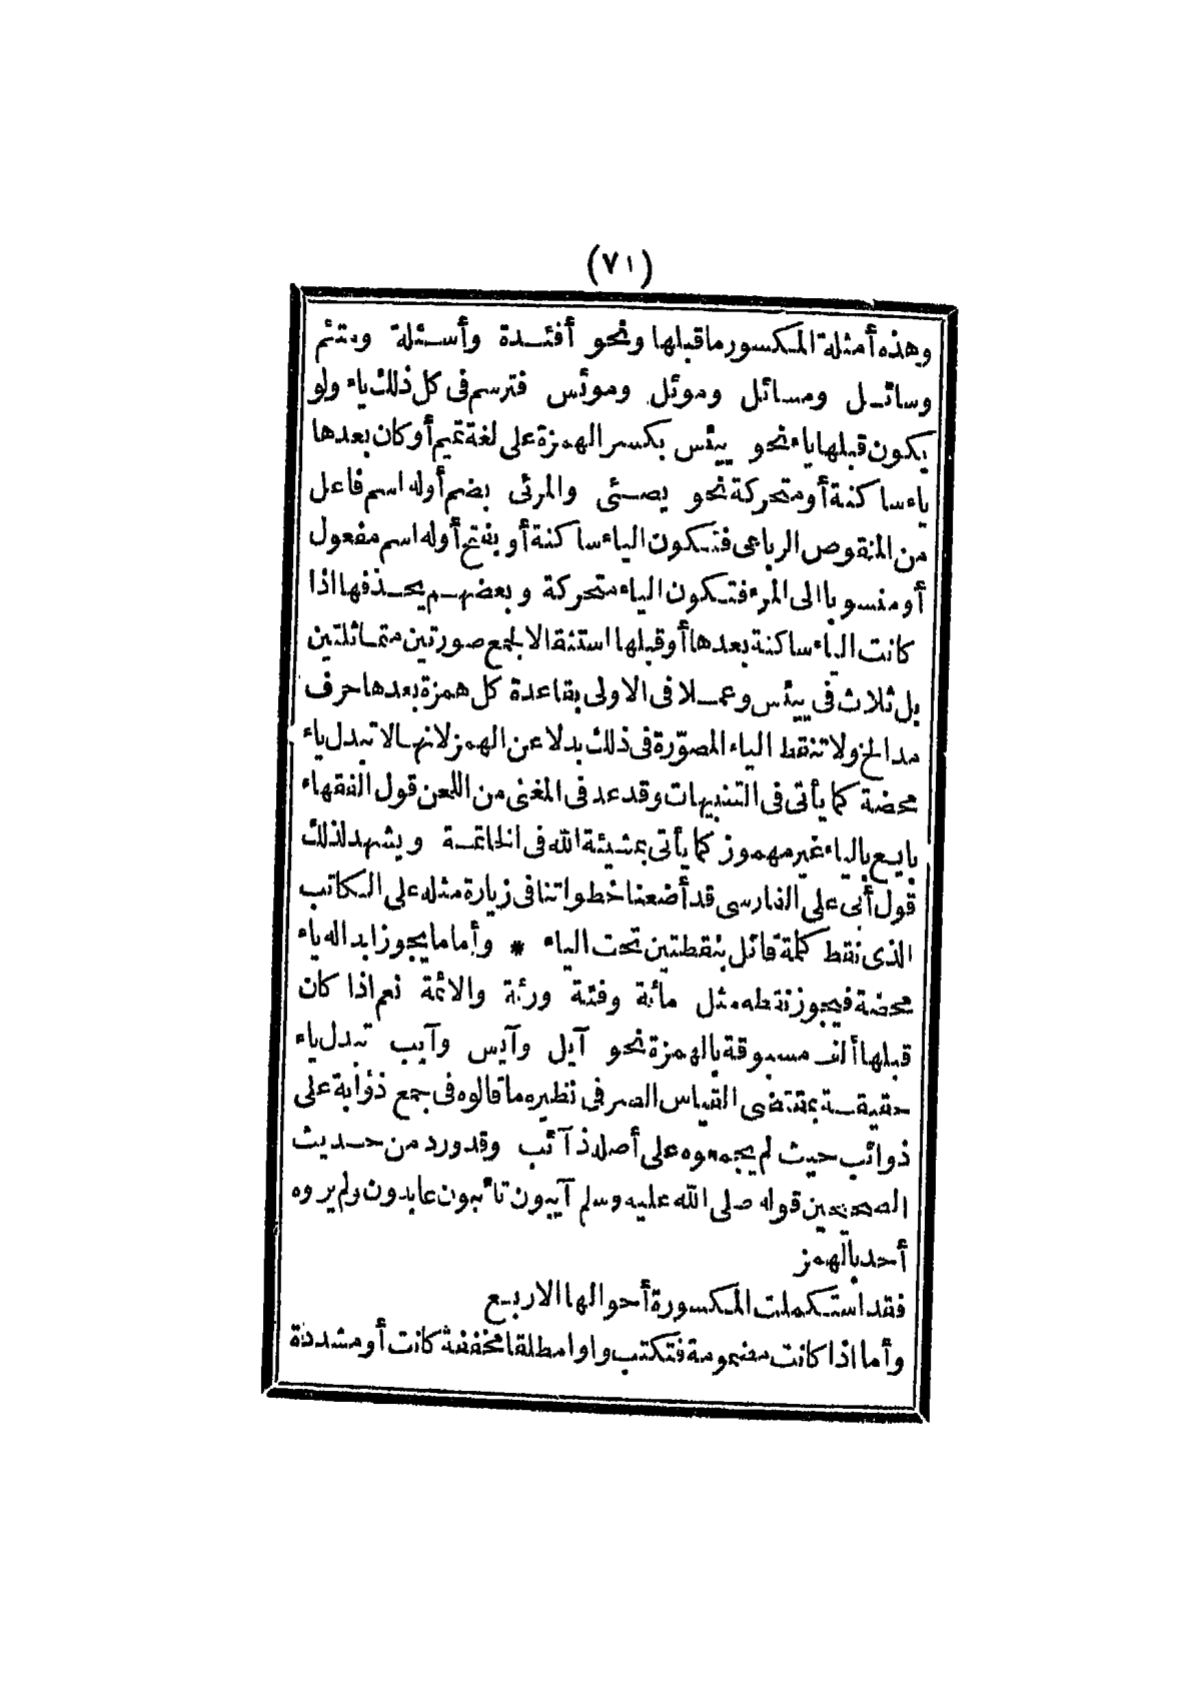 (٧١)
وهذه أمثلة المكسور ماقبلها ونحو أفئدة وأسئلة ويتئم
وسائل ومسائل وموئل وموئس فترسم فى كل ذلك ياء ولو
يكون قبلها ياء نحو ييئس بكسر الهمزة على لغة تميم أو كان بعدها
ياء ساكنة أو متحركة نحو يصئى والمرئى بضم أوله اسم فاعل
من المنقوص الرباعى فتكون الياء ساكنة أو بفتح أوله اسم مفعول
أو منسوبا الى المرء فتكون الياء متحركة وبعضهم يحذفها اذا
كانت الياء ساكنة بعدها أو قبلها استثقالا لجمع صورتين متماثلتين
بل ثلاث فى ييئس وعملا فى الاولى بقاعدة كل همزة بعدها حرف
مد الخ ولا تنقط الياء المصوّرة فى ذلك بدلا عن الهمز لانها لا تبدل ياء
محضة كما يأتى فى التنبيهات وقد عد فى المغنى من اللحن قول الفقهاء
بايع بالياء غير مهموز كما يأتى بمشيئة الله فى الخاتمة ويشهد لذلك
قول أبى على الفارسى قد أضعنا خطواتنا فى زيارة مثله على الكاتب
الذى نقط كلمة قائل بنقطتين تحت الياء * وأما ما يجوز ابداله ياء
محضة فيجوز نقطه مثل مائة وفئة ورئة والائمة نعم اذا كان
قبلها ألف مسبوقة بالهمزة نحو آيل وآيس وآيب تبدل ياء
حقيقة بمقتضى القياس الصرفى نظيره ما قالوه فى جمع ذؤابة على
ذوائب حيث لم يجمعوه على أصله ذآئب وقد ورد من حديث
الصحيحين قوله صلى الله عليه وسلم آيبون تائبون عابدون ولم يروه
أحد بالهمز
فقد استكملت المكسورة أحوالها الاربع
وأما اذا كانت مضمومة فتكتب واوا مطلقا مخففة كانت أو مشددة